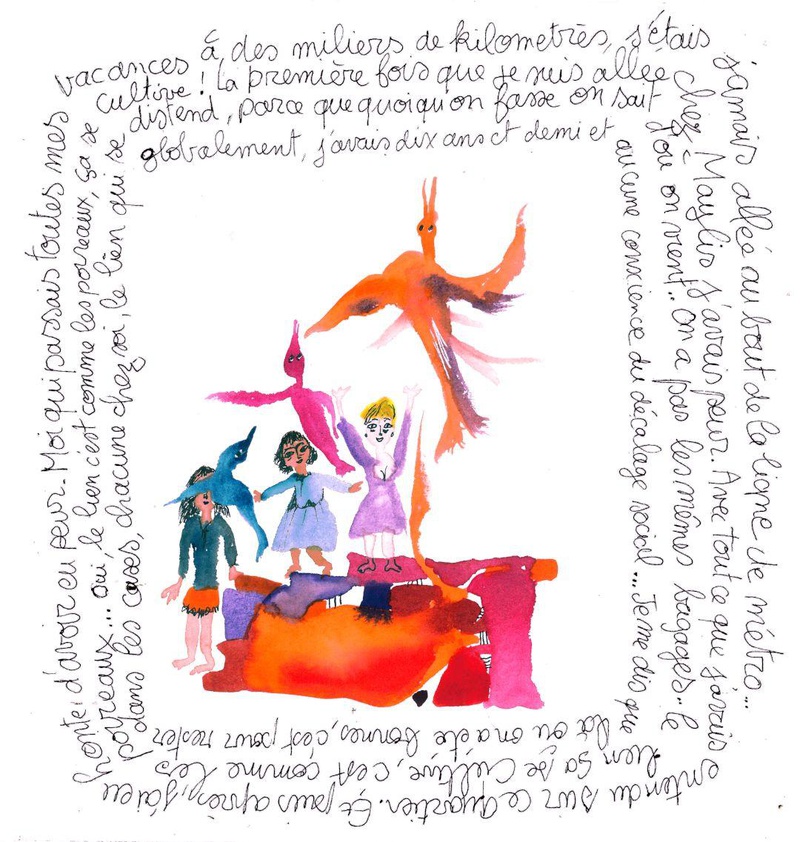 globalement, j'avais dix ans et demi et
aucune conscience du décalage social... Je me dis que
là où on a été bonnes, c'est pour rester
dans les cases, chacune chez soi, le lien qui se
distend, parce que quoiqu'on fasse on sait
d'où on vient.. on a pas les mêmes bagages.. le
lien ça se cultive, c'est comme les
poireaux... oui, le lien c'est comme les poireaux, ça se
cultive ! La première fois que je suis allée
chez Maylis j'avais peur. Avec tout ce que j'avais
entendu sur ce quartier. Et puis après, j'ai eu
honte, d'avoir eu peur. Moi qui passais toutes mes
vacances à des miliers de kilometrès, j'étais
jamais allée au bout de la ligne de métro...